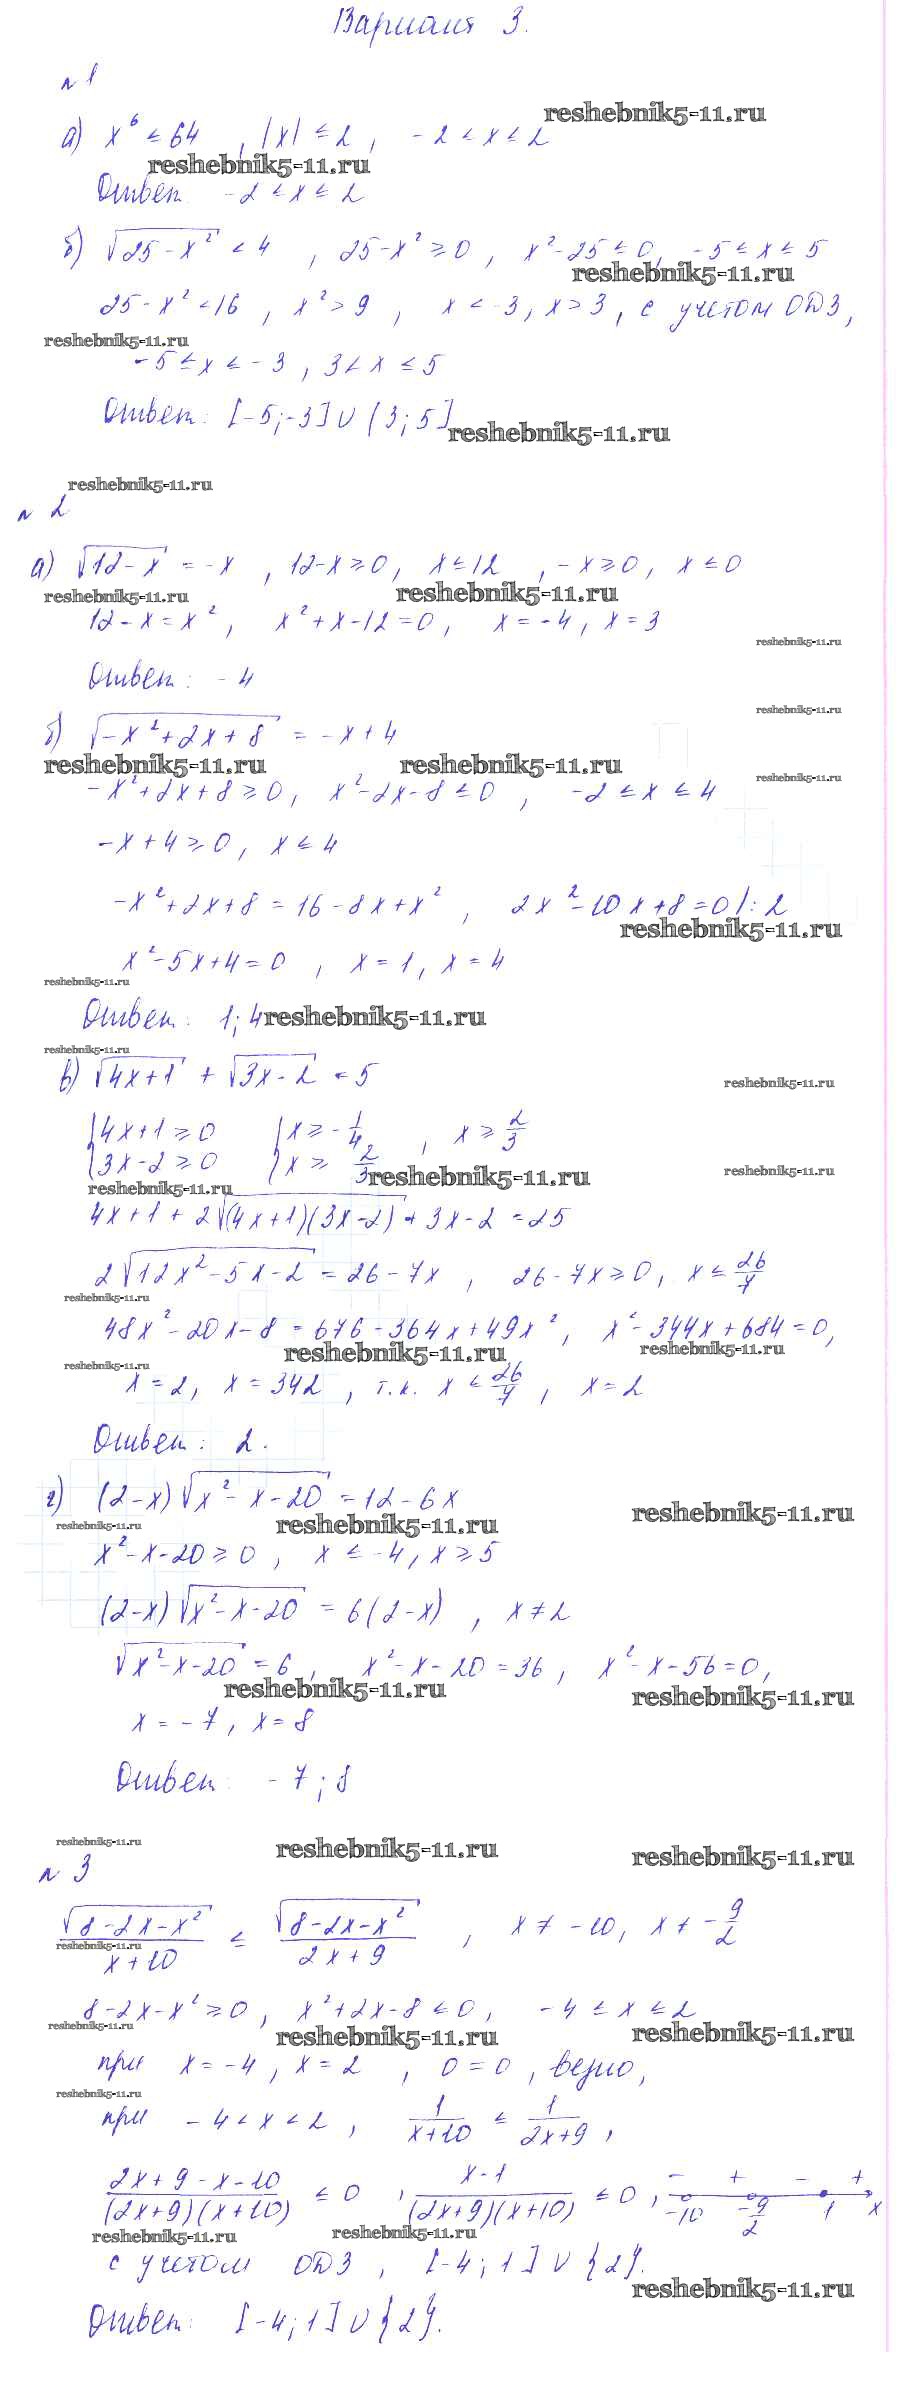 Вариант 3.
№1
reshebnik5-11.ru
а) x⁶ ≤ 64 , |x| ≤ 2 , -2 ≤ x ≤ 2
reshebnik5-11.ru
Ответ: -2 ≤ x ≤ 2
б) √(25-x²) < 4 , 25-x² ≥ 0 , x²-25 ≤ 0, -5 ≤ x ≤ 5
reshebnik5-11.ru
25-x² < 16 , x² > 9 , x < -3, x > 3 , с учетом ОДЗ,
reshebnik5-11.ru
-5 ≤ x < -3 , 3 < x ≤ 5
Ответ: [-5;-3] ∪ (3; 5]
reshebnik5-11.ru
reshebnik5-11.ru
№ 2
а) √(12-x) = -x , 12-x ≥ 0, x ≤ 12 , -x ≥ 0, x ≤ 0
reshebnik5-11.ru reshebnik5-11.ru
12-x = x² , x²+x-12 = 0 , x = -4 , x = 3
reshebnik5-11.ru
Ответ: -4
reshebnik5-11.ru
б) √(-x²+2x+8) = -x+4
reshebnik5-11.ru reshebnik5-11.ru reshebnik5-11.ru
-x²+2x+8 ≥ 0, x²-2x-8 ≤ 0 , -2 ≤ x ≤ 4
-x+4 ≥ 0, x ≤ 4
-x²+2x+8 = 16-8x+x² , 2x²-10x+8=0 |:2
reshebnik5-11.ru
x²-5x+4 = 0 , x = 1, x = 4
reshebnik5-11.ru
Ответ: 1; 4
reshebnik5-11.ru
reshebnik5-11.ru
в) √(4x+1) + √(3x-2) = 5
reshebnik5-11.ru
{4x+1 ≥ 0 {x ≥ -1/4 , x ≥ 2/3
{3x-2 ≥ 0 {x ≥ 2/3
reshebnik5-11.ru reshebnik5-11.ru
reshebnik5-11.ru
4x+1 + 2√((4x+1)(3x-2)) + 3x-2 = 25
2√(12x²-5x-2) = 26-7x , 26-7x ≥ 0, x ≤ 26/7
reshebnik5-11.ru
48x²-20x-8 = 676-364x+49x² , x²-344x+684 = 0,
reshebnik5-11.ru reshebnik5-11.ru
reshebnik5-11.ru
x = 2, x = 342 , т.к. x ≤ 26/7 , x = 2
Ответ: 2.
г) (2-x)√(x²-x-20) = 12-6x
reshebnik5-11.ru reshebnik5-11.ru reshebnik5-11.ru
x²-x-20 ≥ 0 , x ≤ -4, x ≥ 5
(2-x)√(x²-x-20) = 6(2-x) , x ≠ 2
√(x²-x-20) = 6 , x²-x-20 = 36 , x²-x-56 = 0,
reshebnik5-11.ru reshebnik5-11.ru
x = -7, x = 8
Ответ: -7; 8
reshebnik5-11.ru reshebnik5-11.ru reshebnik5-11.ru
№ 3
√(8-2x-x²)/(x+10) ≤ √(8-2x-x²)/(2x+9) , x ≠ -10, x ≠ -9/2
reshebnik5-11.ru
8-2x-x² ≥ 0 , x²+2x-8 ≤ 0, -4 ≤ x ≤ 2
reshebnik5-11.ru reshebnik5-11.ru reshebnik5-11.ru
при x = -4 , x = 2 , 0 = 0 , верно,
reshebnik5-11.ru
при -4 < x < 2 , 1/(x+10) ≤ 1/(2x+9) ,
(2x+9-x-10)/((2x+9)(x+10)) ≤ 0 , (x-1)/((2x+9)(x+10)) ≤ 0 , - + - + -10 -9/2 1 x
reshebnik5-11.ru reshebnik5-11.ru
с учетом ОДЗ , [-4; 1] ∪ {2}.
reshebnik5-11.ru
Ответ: [-4; 1] ∪ {2}.